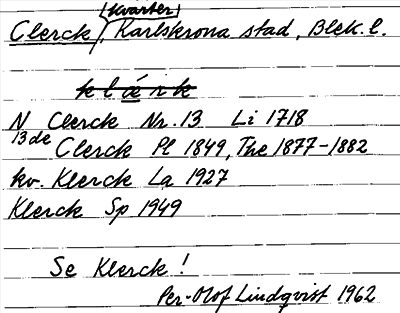 (kvarter)
Clerck, Karlskrona stad, Blek. l.
klärk
N Clerck Nr. 13 Li 1718
13de Clerck Pl 1849, The 1877-1882
kv. Klerck La 1927
Klerck Sp 1949
Se Klerck!
Per-Olof Lindqvist 1962